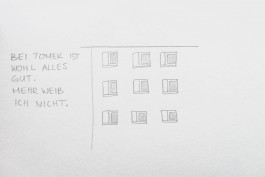 BEI TOMER IST
WOHL ALLES
GUT.
MEHR WEIß
ICH NICHT.